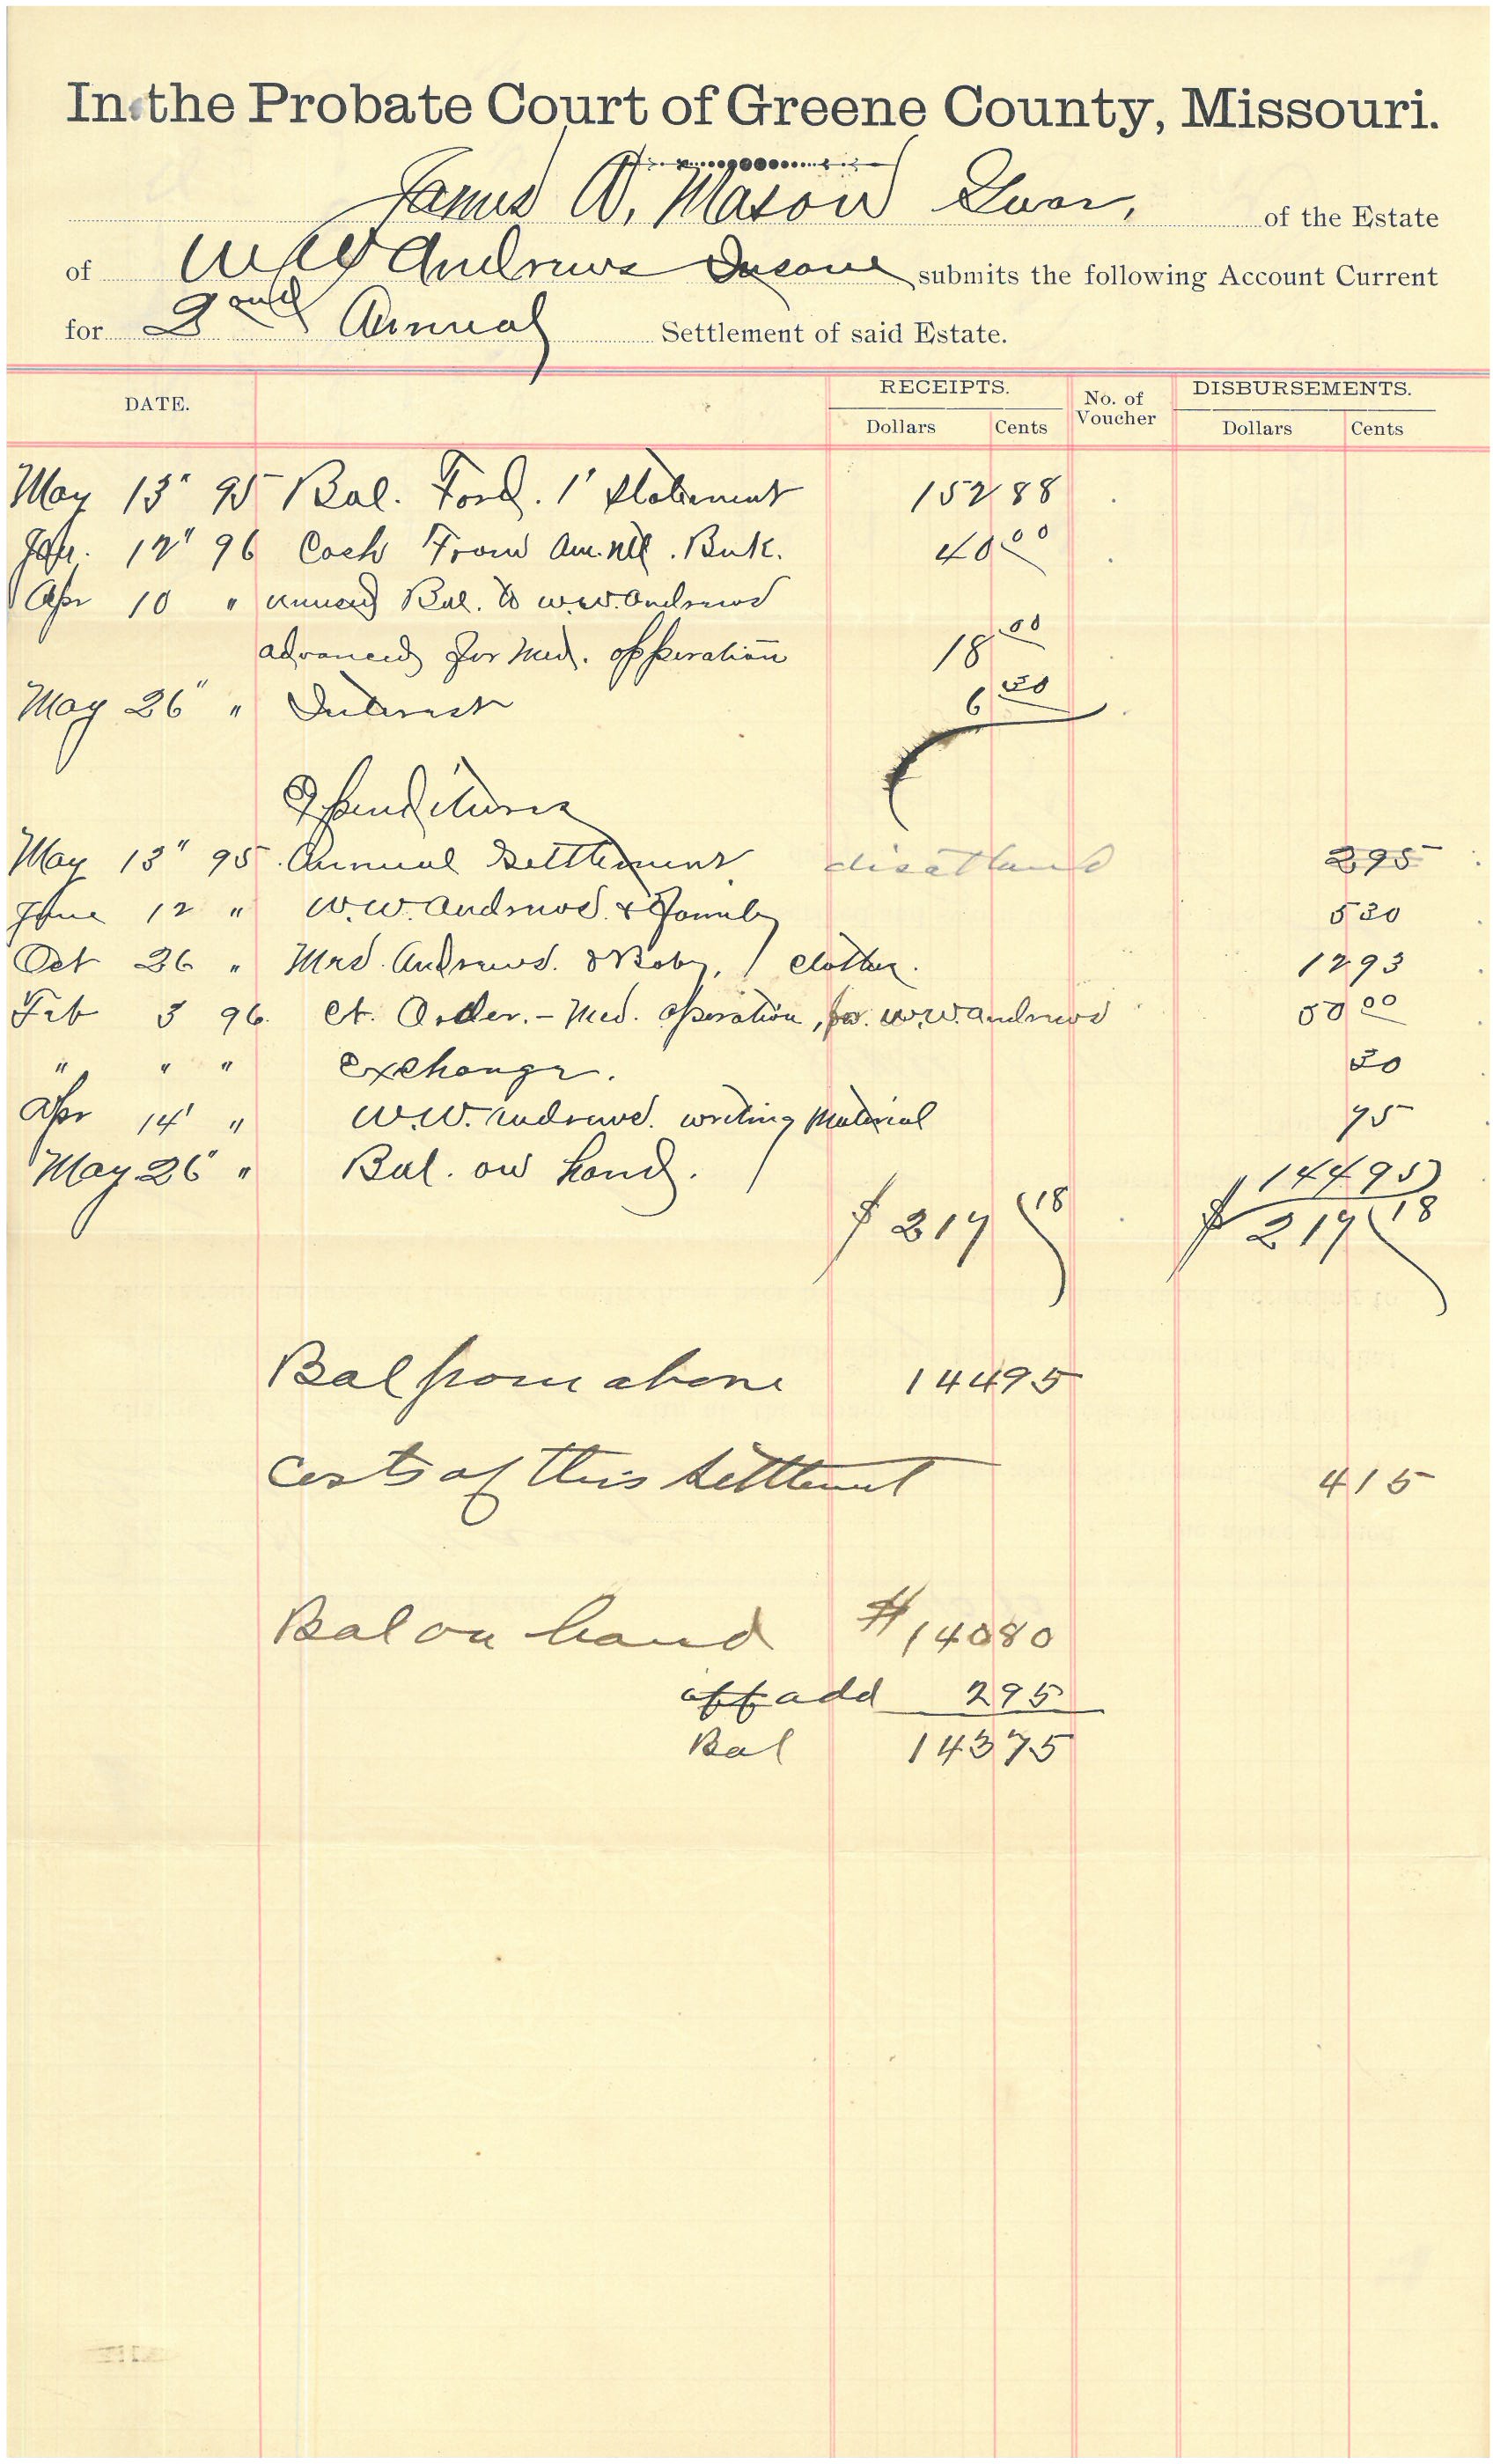 In the Probate Court of Greene County, Missouri.
James A. Mason Guar, of the Estate
of W W Andrews Insane submits the following Account Current
for 2ond Annual Settlement of said Estate.
DATE. RECEIPTS. No. of Voucher DISBURSEMENTS.
Dollars Cents Dollars Cents
May 13" 95 Bal. Ford. 1' Statement 152 88
Jan. 12" 96 Cash From Am. Ntl. Bnk. 40 00
Apr 10 " unused Bal. to W.W. Andrews
advanced for Med. opperation 18 00
May 26" " Interest 6 30
Expenditures
May 13" 95 Annual Settlement disallowed 2 95
June 12 " W.W. Andrews & Family 5 30
Oct 26 " Mrs. Andrews. & Baby, clothes. 12 93
Feb 3 96. Ct. Order. - Med. operation, for W.W. Andrews 50 00
" " " exchange. 30
Apr 14' " W.W. Andrews. writing Material 75
May 26" " Bal. on hand. 144 95
$ 217 18 $ 217 18
Bal from above 144 95
Costs of this Settlement 4 15
Bal on hand $ 140 80
off add 2 95
Bal 143 75